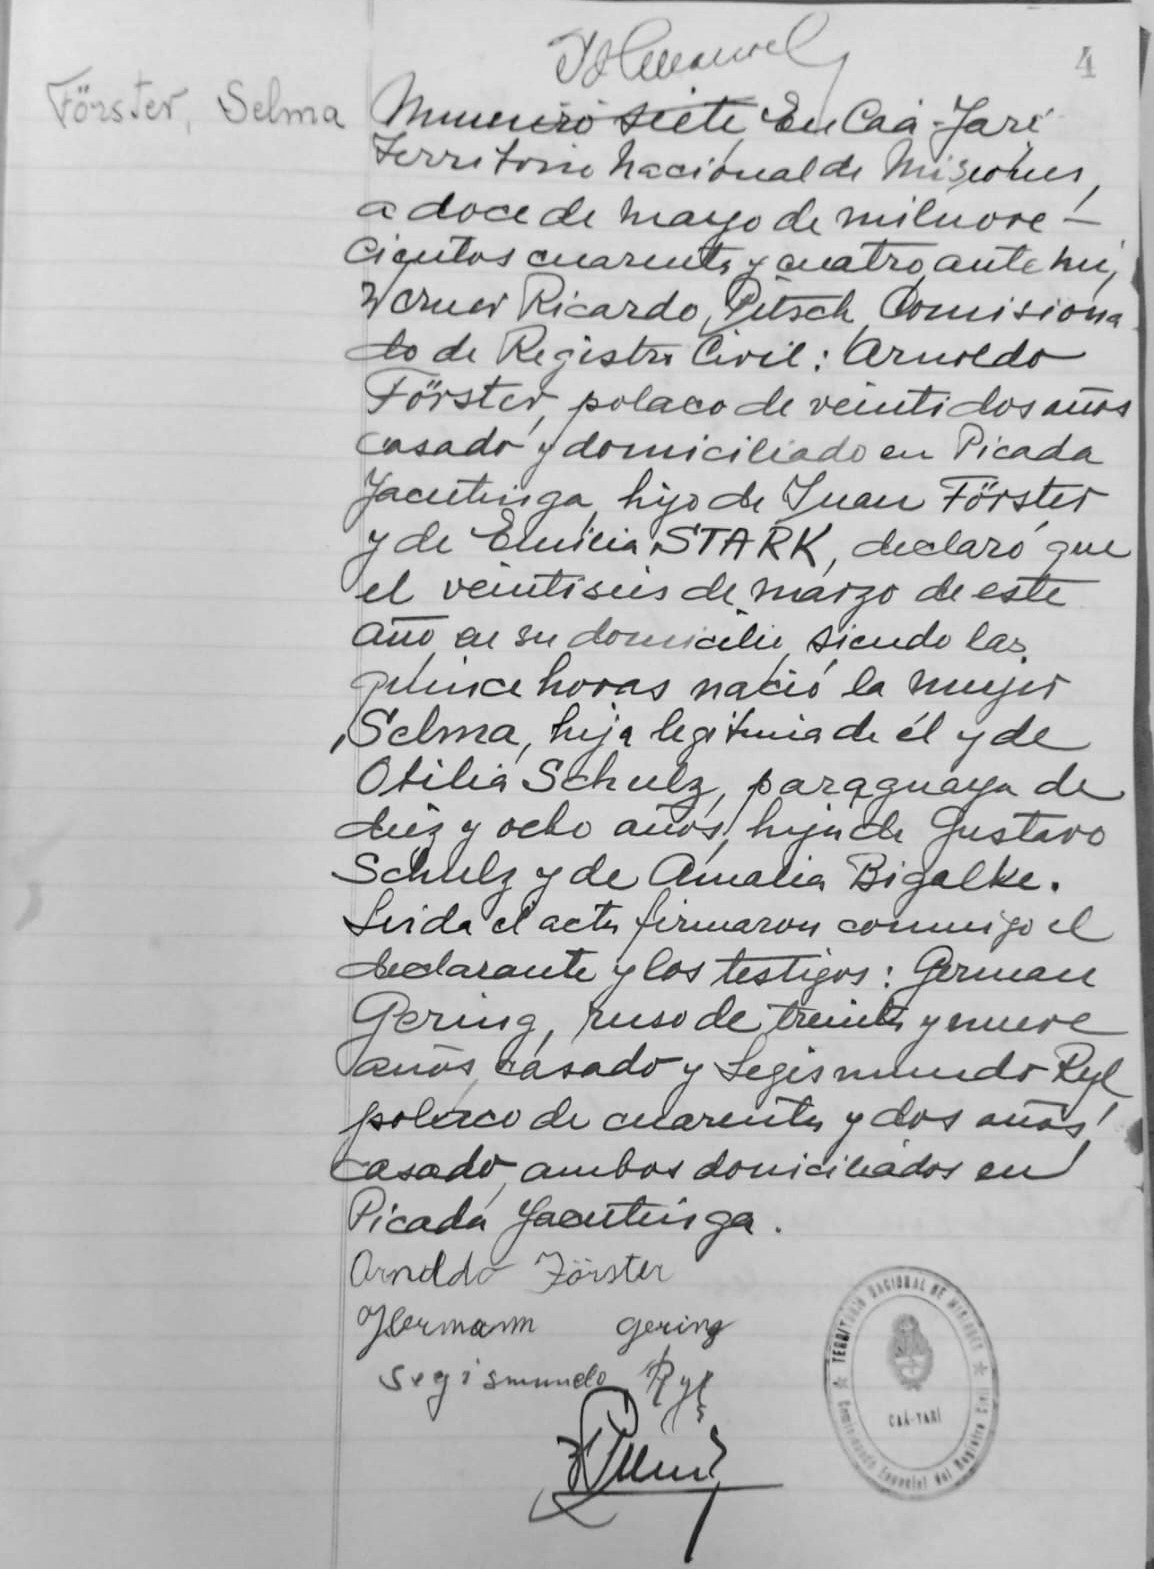 4
Förster, Selma
Numero siete, En Caá-Yarí
Territorio Nacional de Misiones,
a doce de mayo de milnove-
cientos cuarenta y cuatro, ante mi,
Werner Ricardo Pitsch, Comisiona
do de Registro Civil: Arnoldo
Förster, polaco de veintidos años
casado y domiciliado en Picada
Yacutinga, hijo de Juan Förster
y de Emilia STARK, declaró que
el veintiseis de marzo de este
año, en su domicilio, siendo las
quince horas nació la mujer
Selma, hija legitima de él y de
Otilia Schulz, paraguaya de
diez y ocho años, hija de Gustavo
Schulz y de Amalia Bigalke.
Leida el acta firmaron conmigo el
declarante y los testigos: German
Gering, ruso de treinta y nueve
años, casado y Segismundo Ryl
polaco de cuarenta y dos años,
casado, ambos domiciliados en
Picada Yacutinga.
Arnoldo Förster
Hermann Gering
Segismundo Ryl
TERRITORIO NACIONAL DE MISIONES
CAÁ-YARÍ
Comisionado Especial del Registro Civil